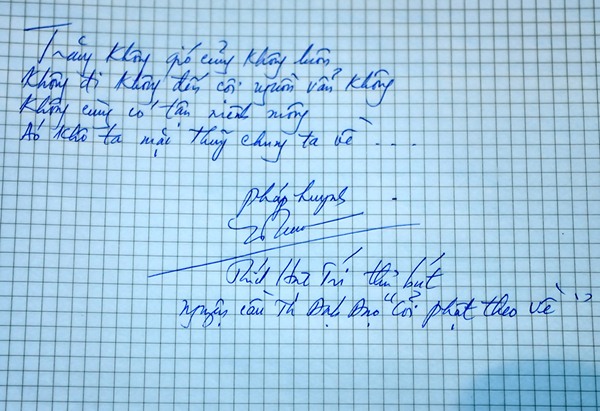 Trăng không gió cũng không luôn
Không đi không đến cội nguồn vẫn không
Không cùng có tận mênh mông
Áo khô ta mặc thuỷ chung ta về ...
pháp huynh
Trí thủ bút
nguyện cầu Th Anh "Cõi phật theo về"